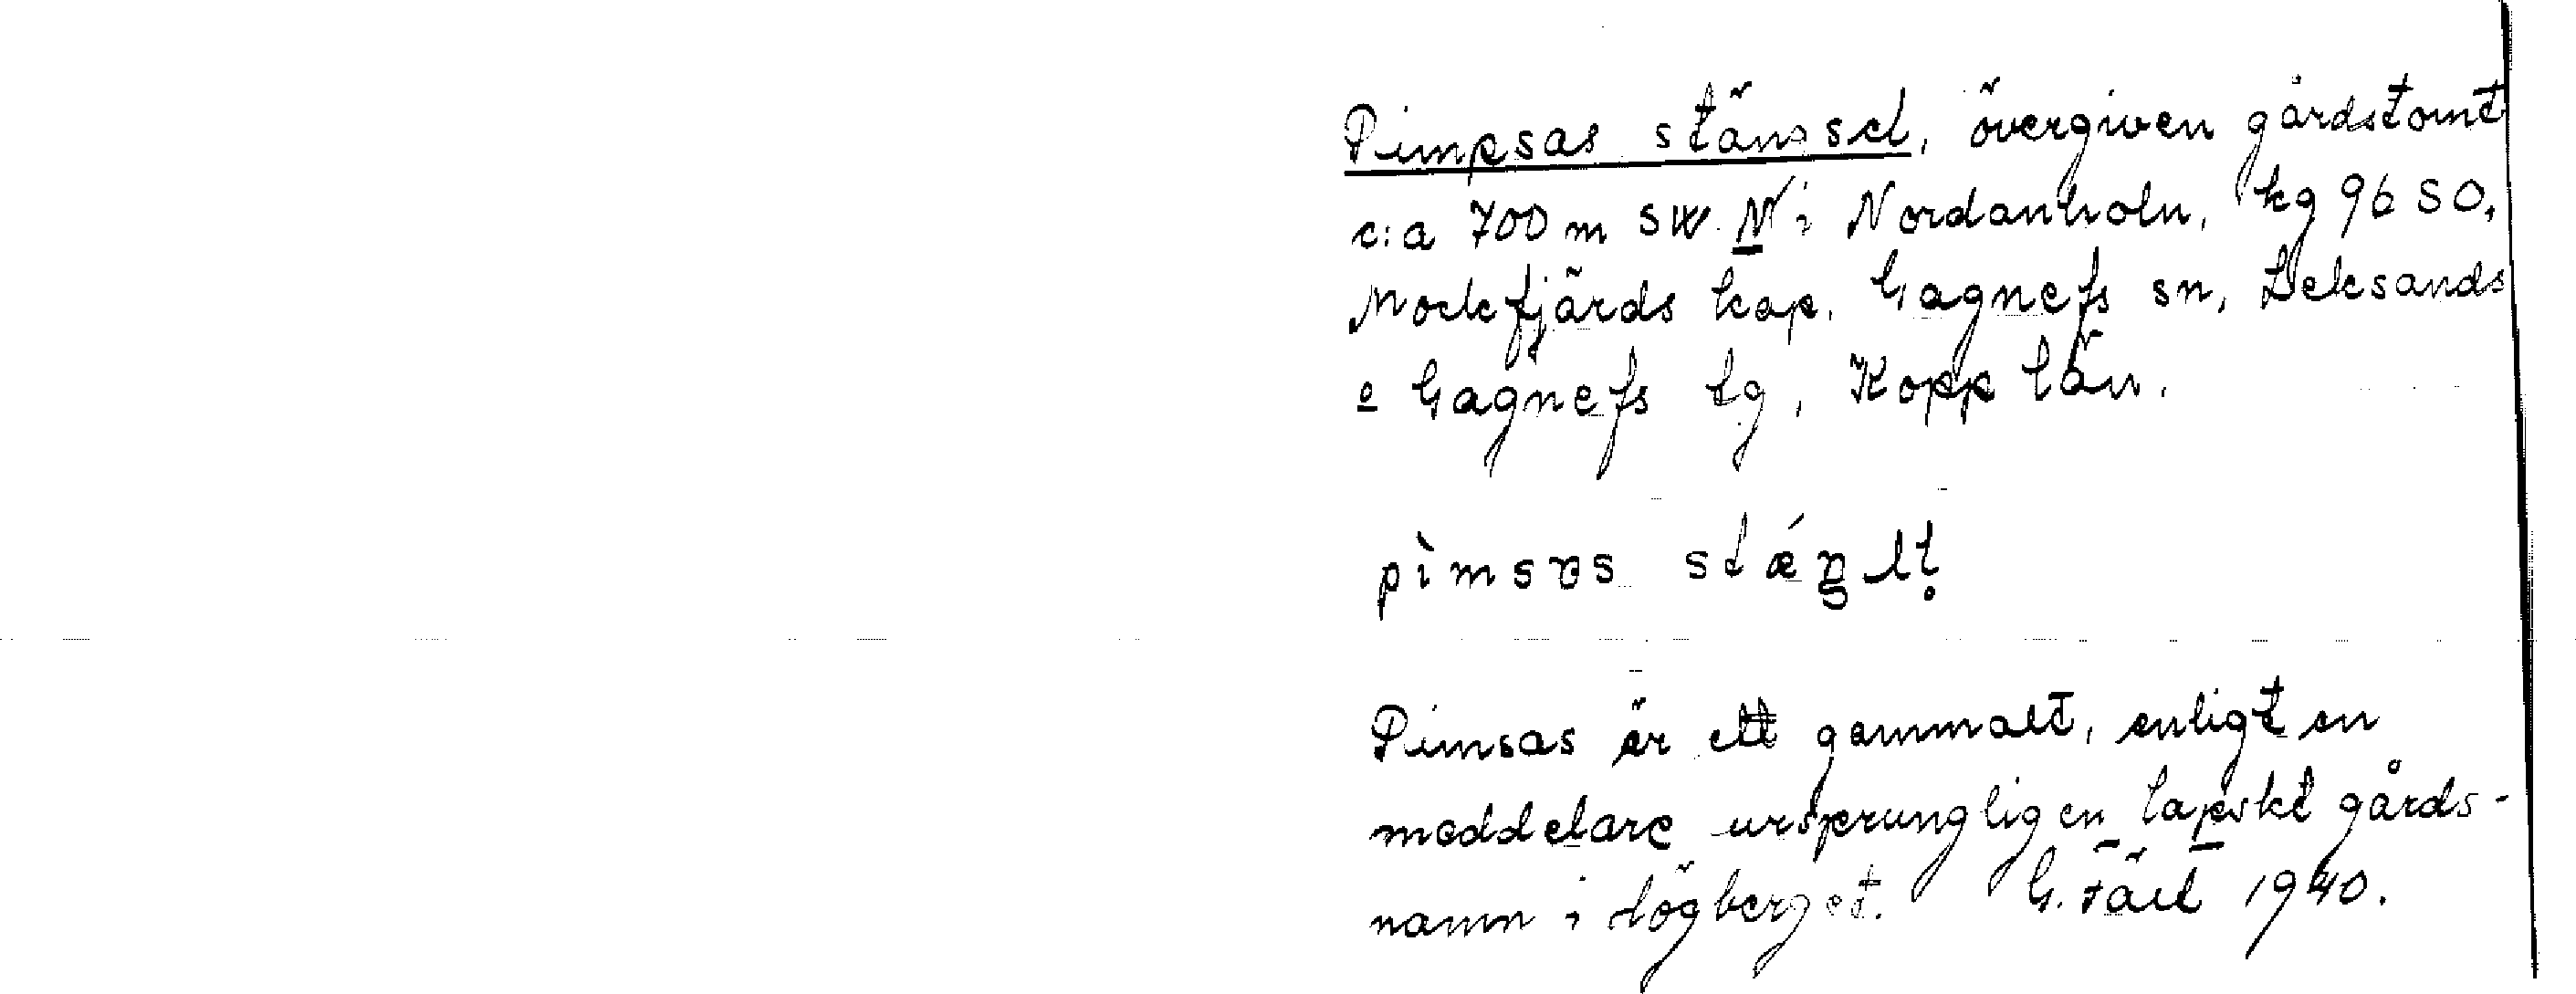 Pimpsas stängsel, övergiven gårdstomt
c:a 700 m SW N i Nordanholn, kg 96 SO,
Mockfjärds kap. Gagnefs sn, Leksands
o Gagnefs tg, Kopp län.
pìmsɐs
Pimsas är ett gammalt, enligt en
meddelare ursprungligen lapskt gårds-
namn i Högberget. G. 1940.